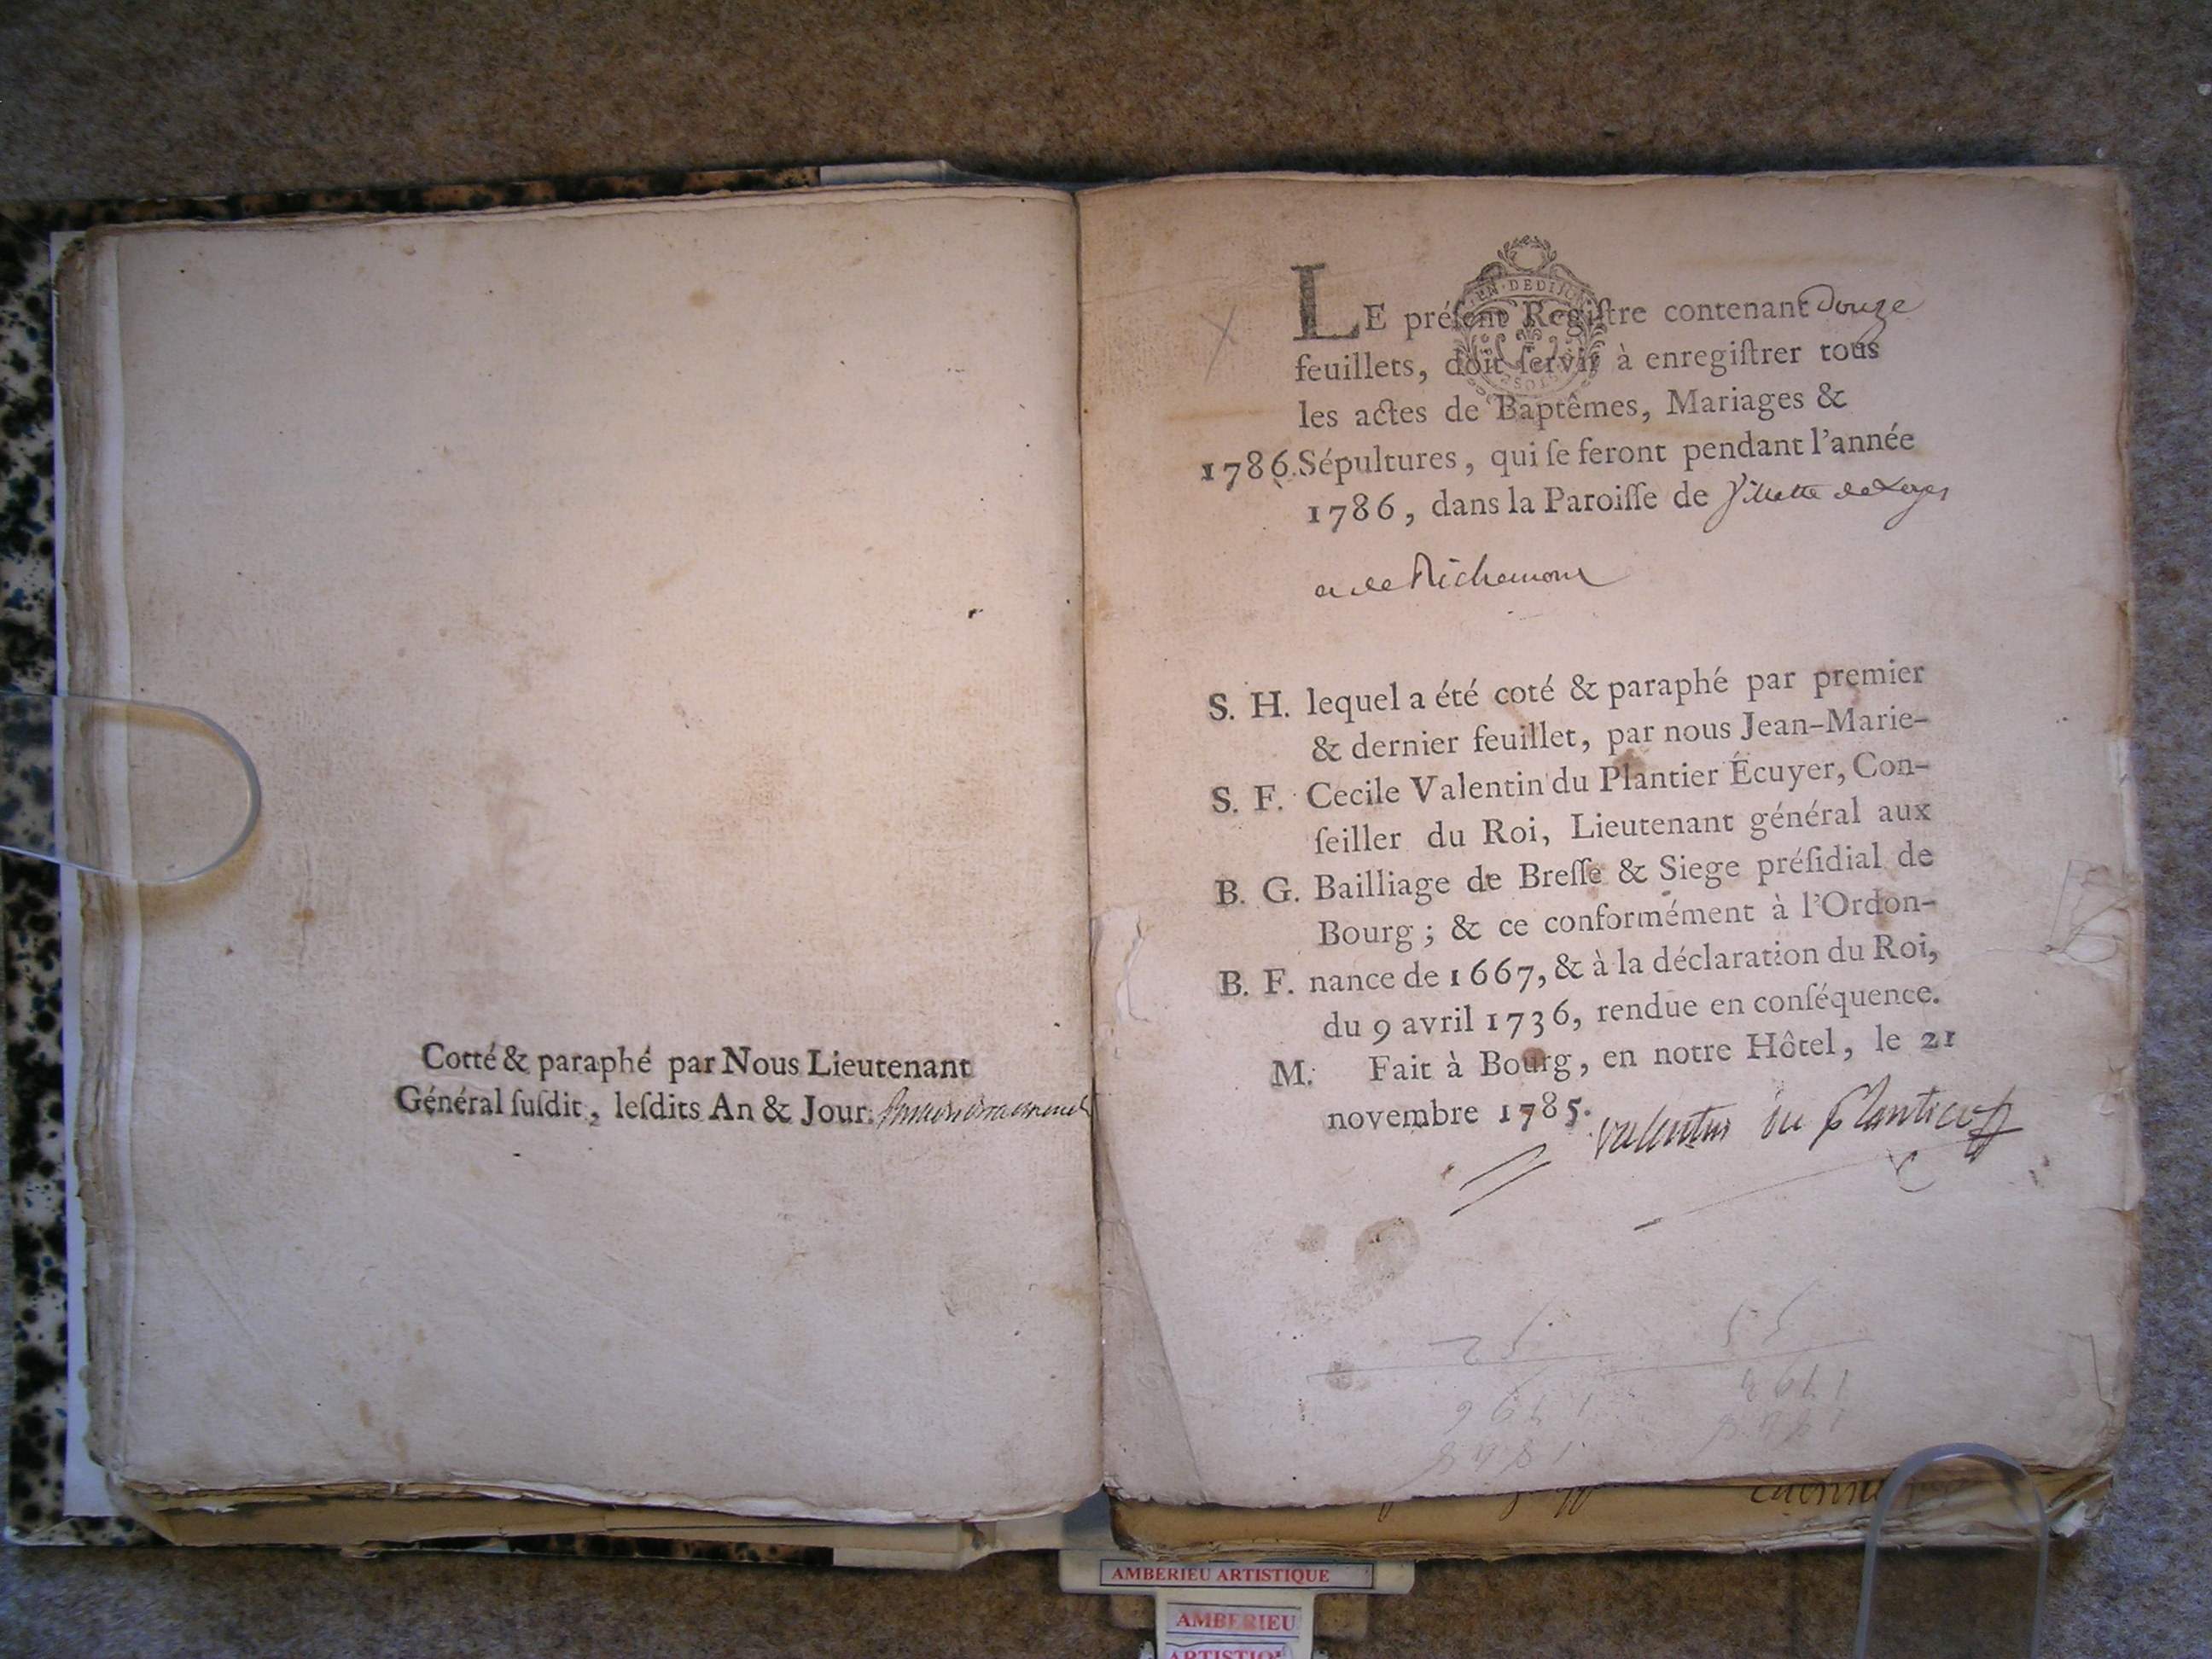 Cotté & paraphé par Nous Lieutenant
Général ſuſdit, leſdits An & Jour.
LE préſent Regiſtre contenant Douze
feuillets, doit ſervir à enregiſtrer tous
les actes de Baptêmes, Mariages &
1786. Sépultures, qui ſe feront pendant l'année
1786, dans la Paroiſſe de Villette de Loyes
et de Richemont
S. H. lequel a été coté & paraphé par premier
& dernier feuillet, par nous Jean-Marie-
S. F. Cecile Valentin du Plantier Écuyer, Con-
ſeiller du Roi, Lieutenant général aux
B. G. Bailliage de Breſſe & Siege préſidial de
Bourg ; & ce conformément à l'Ordon-
B. F. nance de 1667, & à la déclaration du Roi,
du 9 avril 1736, rendue en conſéquence.
M. Fait à Bourg, en notre Hôtel, le 21
novembre 1785. Valentin du Plantier
AMBERIEU ARTISTIQUE
AMBERIEU
ARTISTIQ